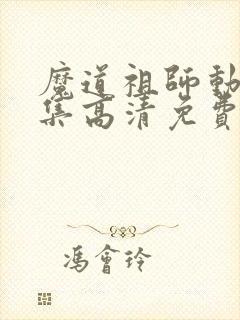 魔道祖師動
集高清免費
馮會玲